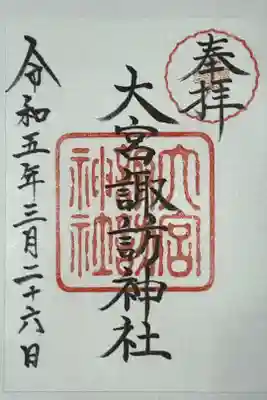 奉拝
大宮諏訪神社
令和五年三月二十六日